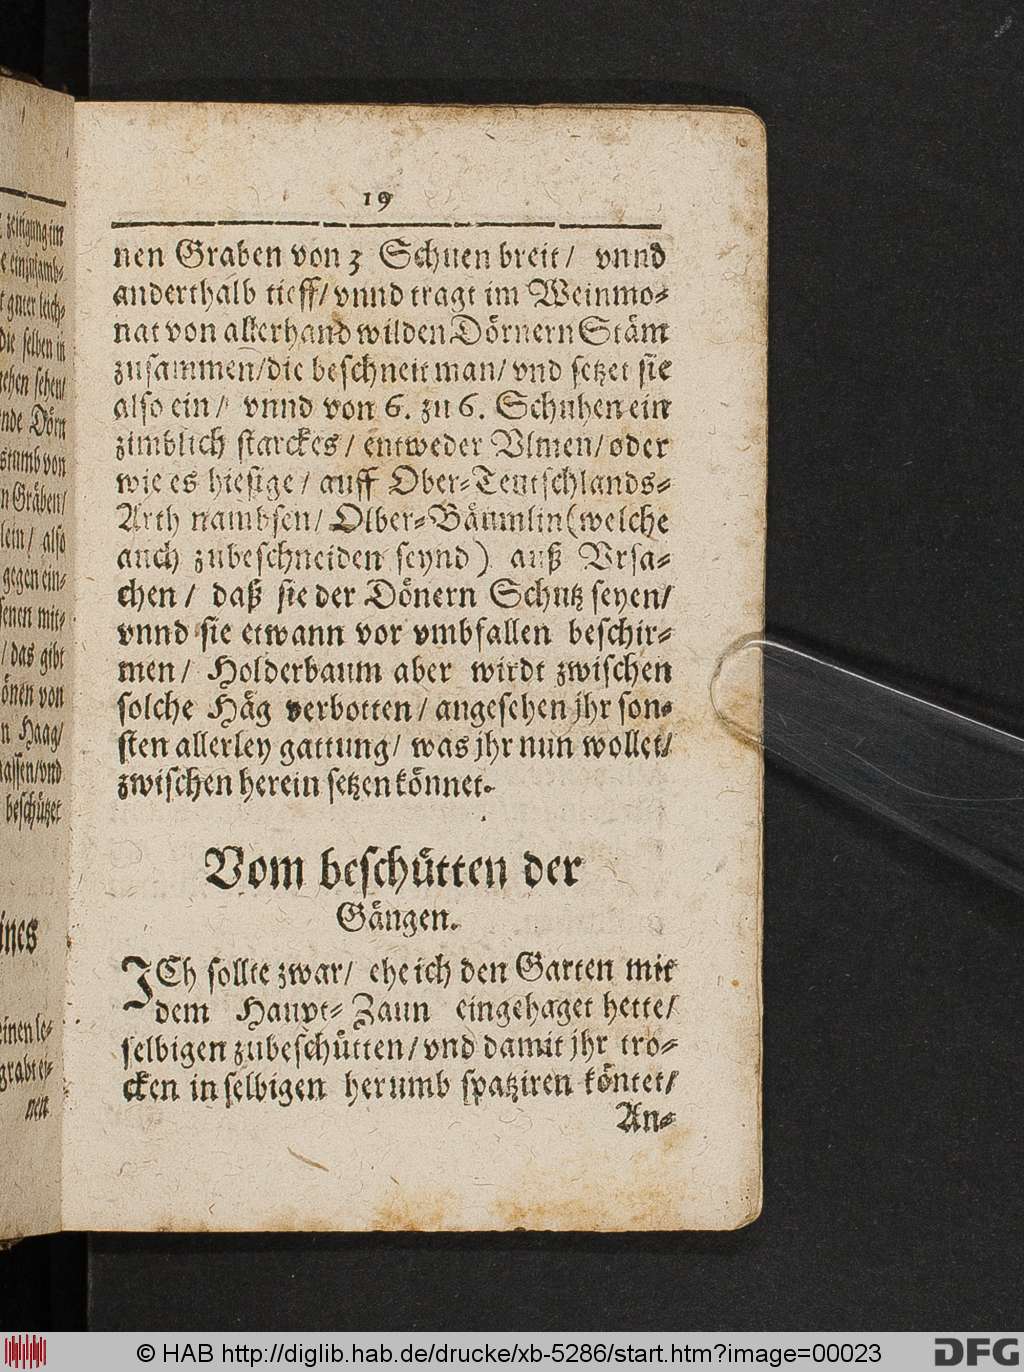 19
nen Graben von 3 Schuen breit/ vnnd
anderthalb tieff/ vnnd tragt im Weinmo-
nat von allerhand wilden Dörnern Stäm
zusammen/ die beschneit man/ vnd setzet sie
also ein/ vnnd von 6. zu 6. Schuhen ein
zimblich starckes/ entweder Vlmen/ oder
wie es hiesige/ auff Ober-Teutschlands-
Arth nambsen/ Olber-Bäumlin (welche
auch zubeschneiden seynd) auß Vrsa-
chen/ daß sie der Dönern Schutz seyen/
vnnd sie etwann vor vmbfallen beschir-
men/ Holderbaum aber wirdt zwischen
solche Häg verbotten/ angesehen jhr son-
sten allerley gattung/ was jhr nun wollet/
zwischen herein setzen könnet.
Vom beschütten der
Gängen.
JCh sollte zwar/ ehe ich den Garten mit
dem Haupt-Zaun eingehaget hette/
selbigen zubeschütten/ vnd damit jhr tro-
cken in selbigen herumb spatziren köntet/
An-
© HAB http://diglib.hab.de/drucke/xb-5286/start.htm?image=00023
DFG